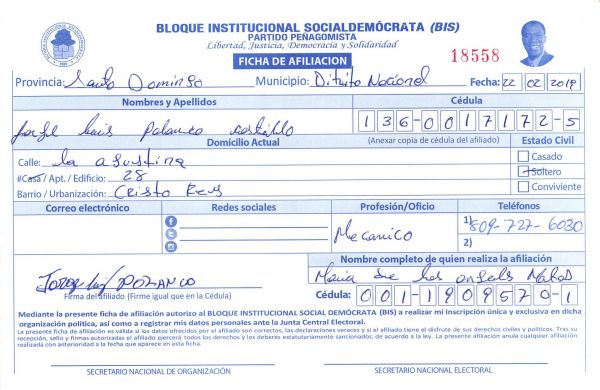 BLOQUE INSTITUCIONAL SOCIALDEMÓCRATA (BIS)
PARTIDO PEÑAGOMISTA
Libertad, Justicia, Democracia y Solidaridad
FICHA DE AFILIACION
18558
Provincia: Santo Domingo Municipio: Ditrito Nacional Fecha: 22 02 2019
Nombres y Apellidos Cédula
Jorge Luis Polanco Castillo 136-0017172-5
Domicilio Actual (Anexar copia de cédula del afiliado) Estado Civil
Calle: La agustina Casado
#Casa / Apt. / Edificio: 28 Soltero
Barrio / Urbanización: Cristo Rey Conviviente
Correo electrónico Redes sociales Profesión/Oficio Teléfonos
Mecanico 1) 809-727-6030
2)
Nombre completo de quien realiza la afiliación
Jorge Luis POLANCO Maria de los angels Matos
Firma del afiliado (Firme igual que en la Cédula) Cédula: 001-1909570-1
Mediante la presente ficha de afiliación autorizo al BLOQUE INSTITUCIONAL SOCIAL DEMÓCRATA (BIS) a realizar mi inscripción única y exclusiva en dicha
organización política, así como a registrar mis datos personales ante la Junta Central Electoral.
La presente ficha de afiliación es válida si los datos ofrecidos por el afiliado son correctos, las declaraciones veraces y si el afiliado tiene el disfrute de sus derechos civiles y políticos. Tras su
recepción, sello y firmas autorizadas el afiliado ejercerá todos los derechos y los deberes estatutariamente sancionados, de acuerdo a la ley. La presente afiliación anula cualquier afiliación
realizada con anterioridad a la fecha que aparece en esta ficha.
SECRETARIO NACIONAL DE ORGANIZACIÓN SECRETARIO NACIONAL ELECTORAL